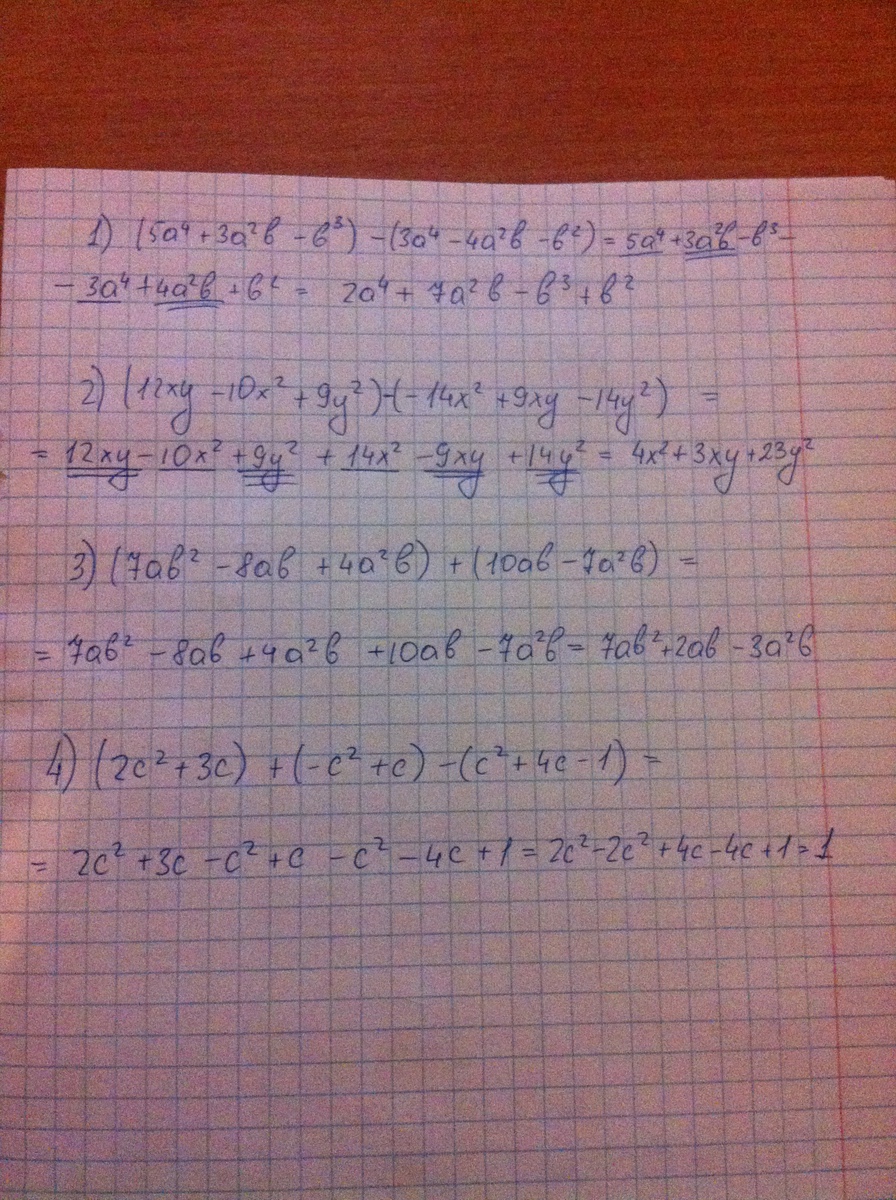 1) (5a⁴ + 3a²в - в³) - (3a⁴ - 4a²в - в²) = 5a⁴ + 3a²в - в³ -
- 3a⁴ + 4a²в + в² = 2a⁴ + 7a²в - в³ + в²
2) (12xy - 10x² + 9y²) - (-14x² + 9xy - 14y²) =
= 12xy - 10x² + 9y² + 14x² - 9xy + 14y² = 4x² + 3xy + 23y²
3) (7aв² - 8aв + 4a²в) + (10aв - 7a²в) =
= 7aв² - 8aв + 4a²в + 10aв - 7a²в = 7aв² + 2aв - 3a²в
4) (2c² + 3c) + (-c² + c) - (c² + 4c - 1) =
= 2c² + 3c - c² + c - c² - 4c + 1 = 2c² - 2c² + 4c - 4c + 1 = 1